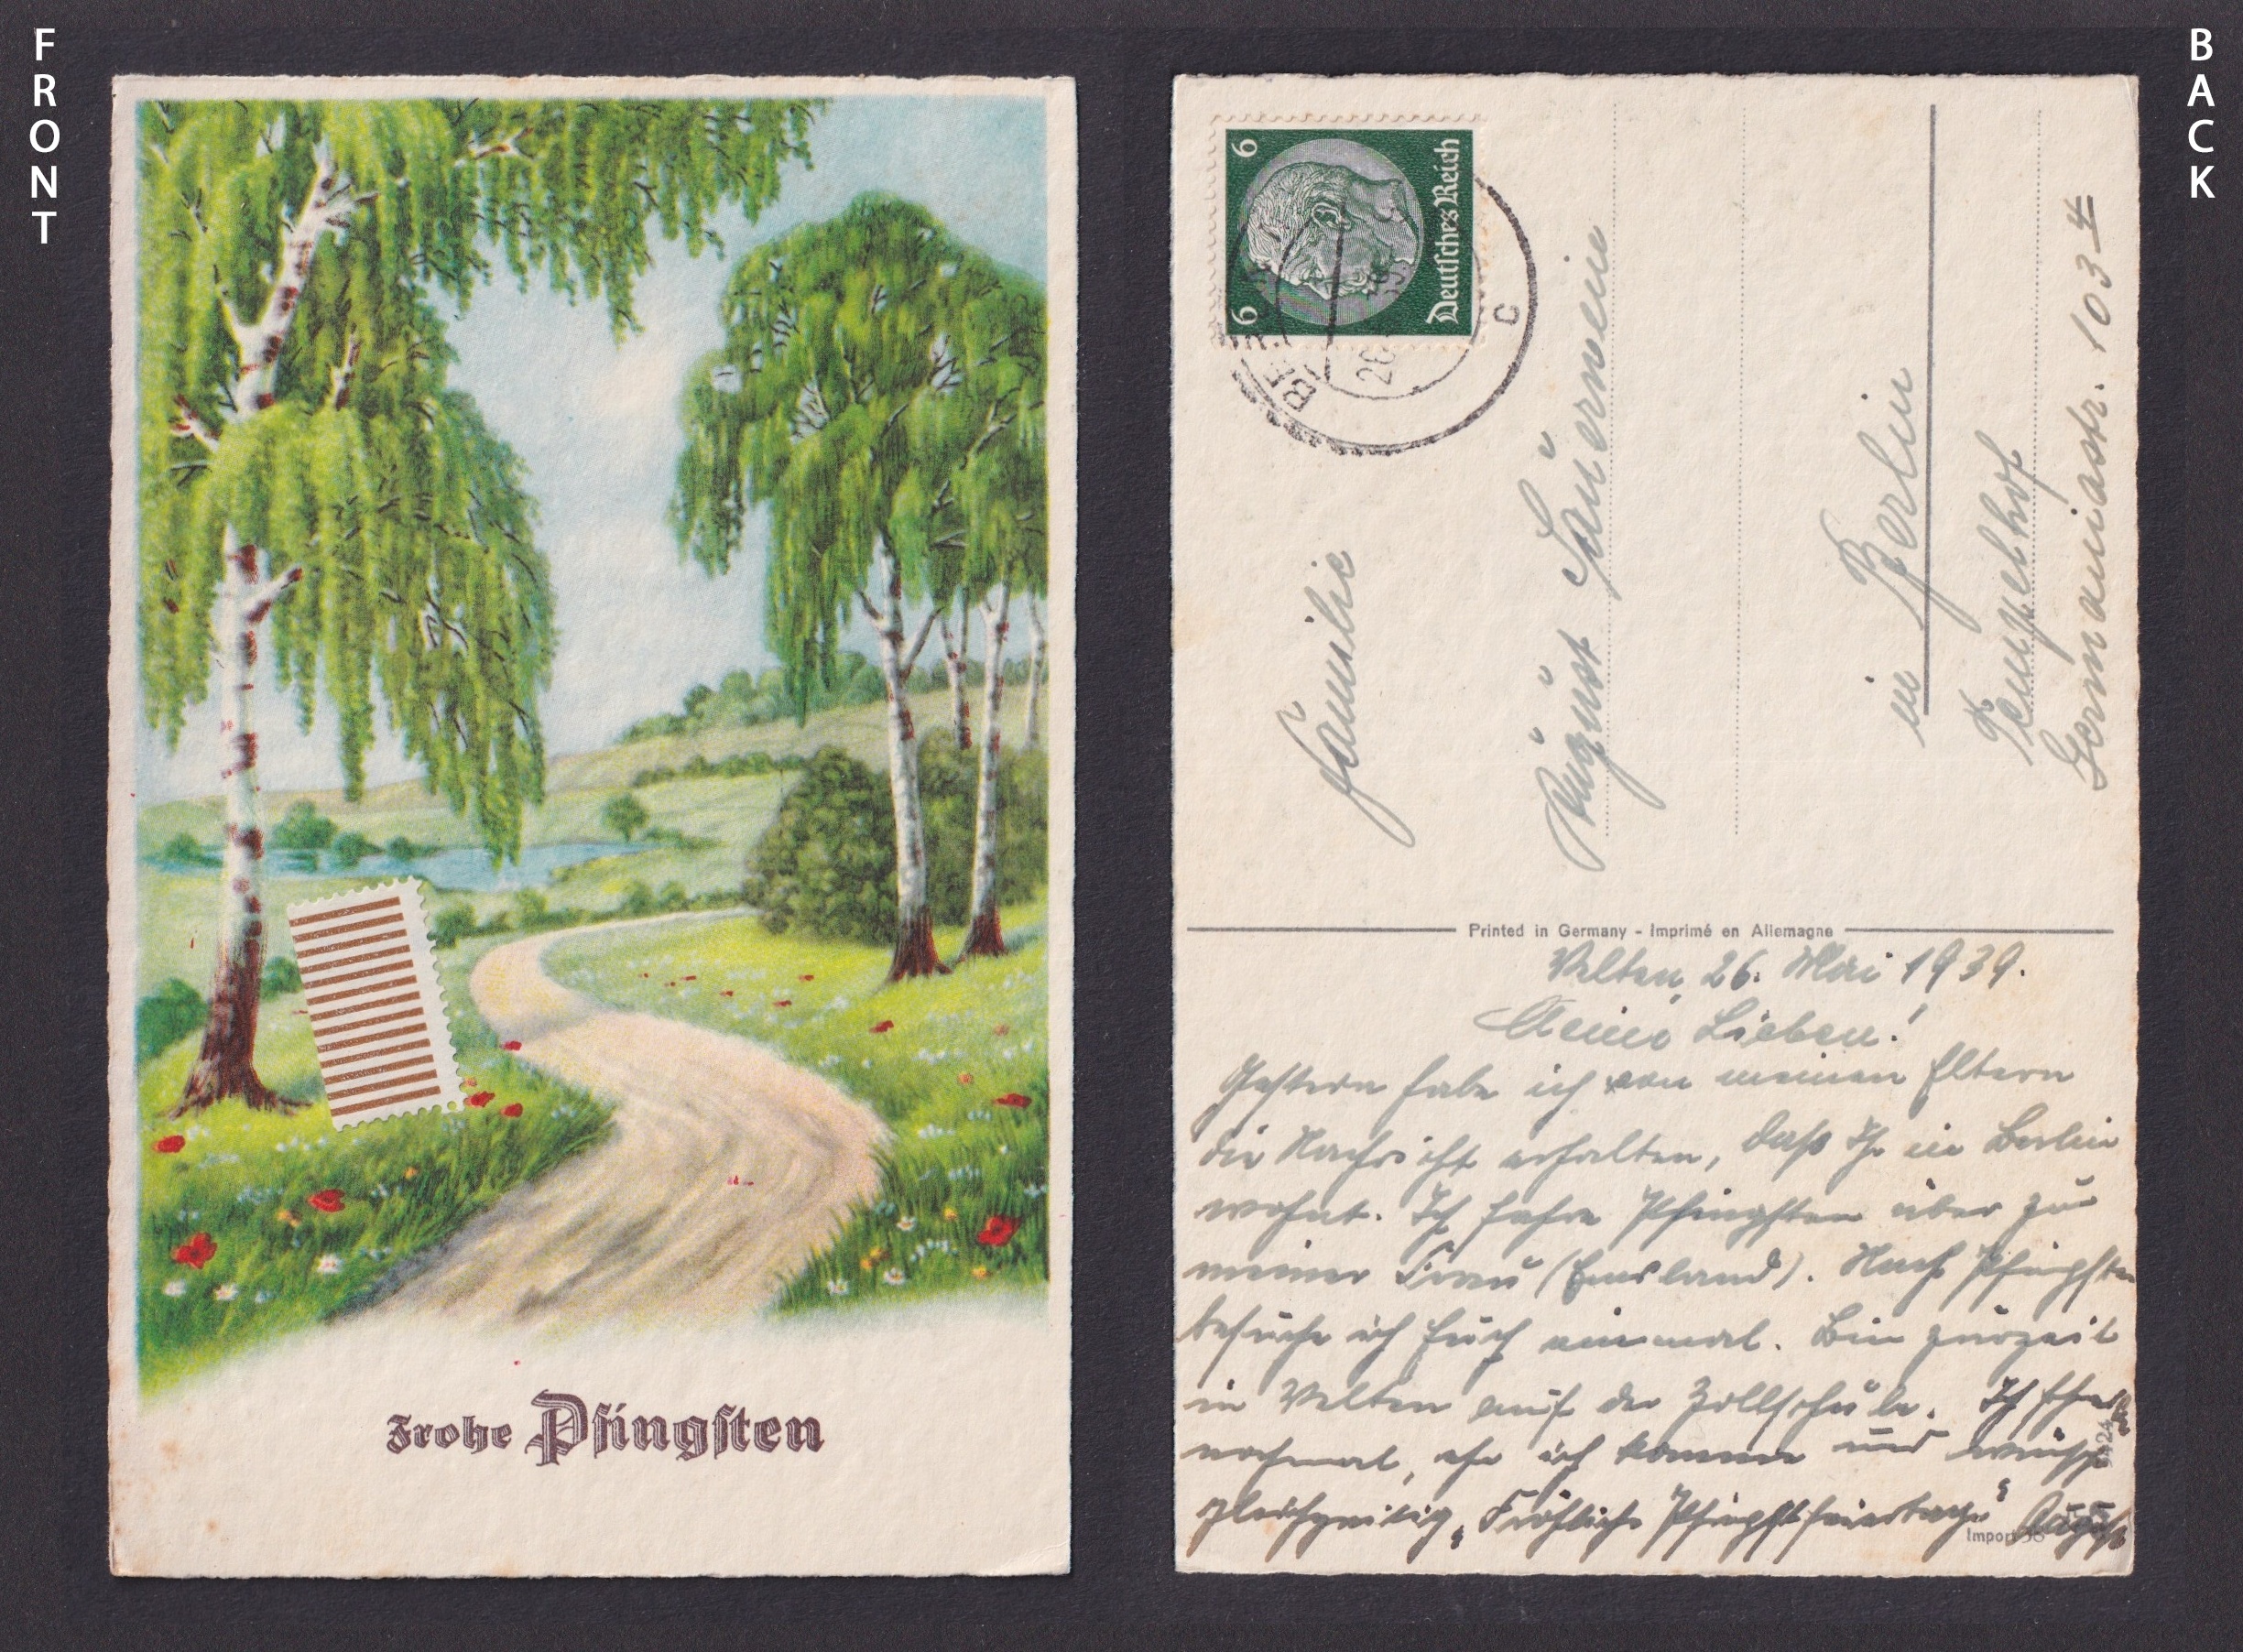 FRONT
BACK
Frohe Pfingsten
6 6
Deutsches Reich
C
Familie
August Sauerwein
in Berlin
Tempelhof
Germaniastr. 103 4
Printed in Germany - Imprimé en Allemagne
Velten, 26. Mai 1939.
Meine Lieben!
Gestern habe ich von meinen Eltern
die Nachricht erhalten, daß Ihr in Berlin
wohnt. Ich fahre Pfingsten über zur
meiner Frau (Emsland). Nach Pfingsten
besuche ich Euch einmal. Bin zurzeit
in Velten auf der Zollschule. Ich
nochmal, ehe ich komme und wünsche
gleichzeitig „Fröhliche Pfingstfeiertage"
Import